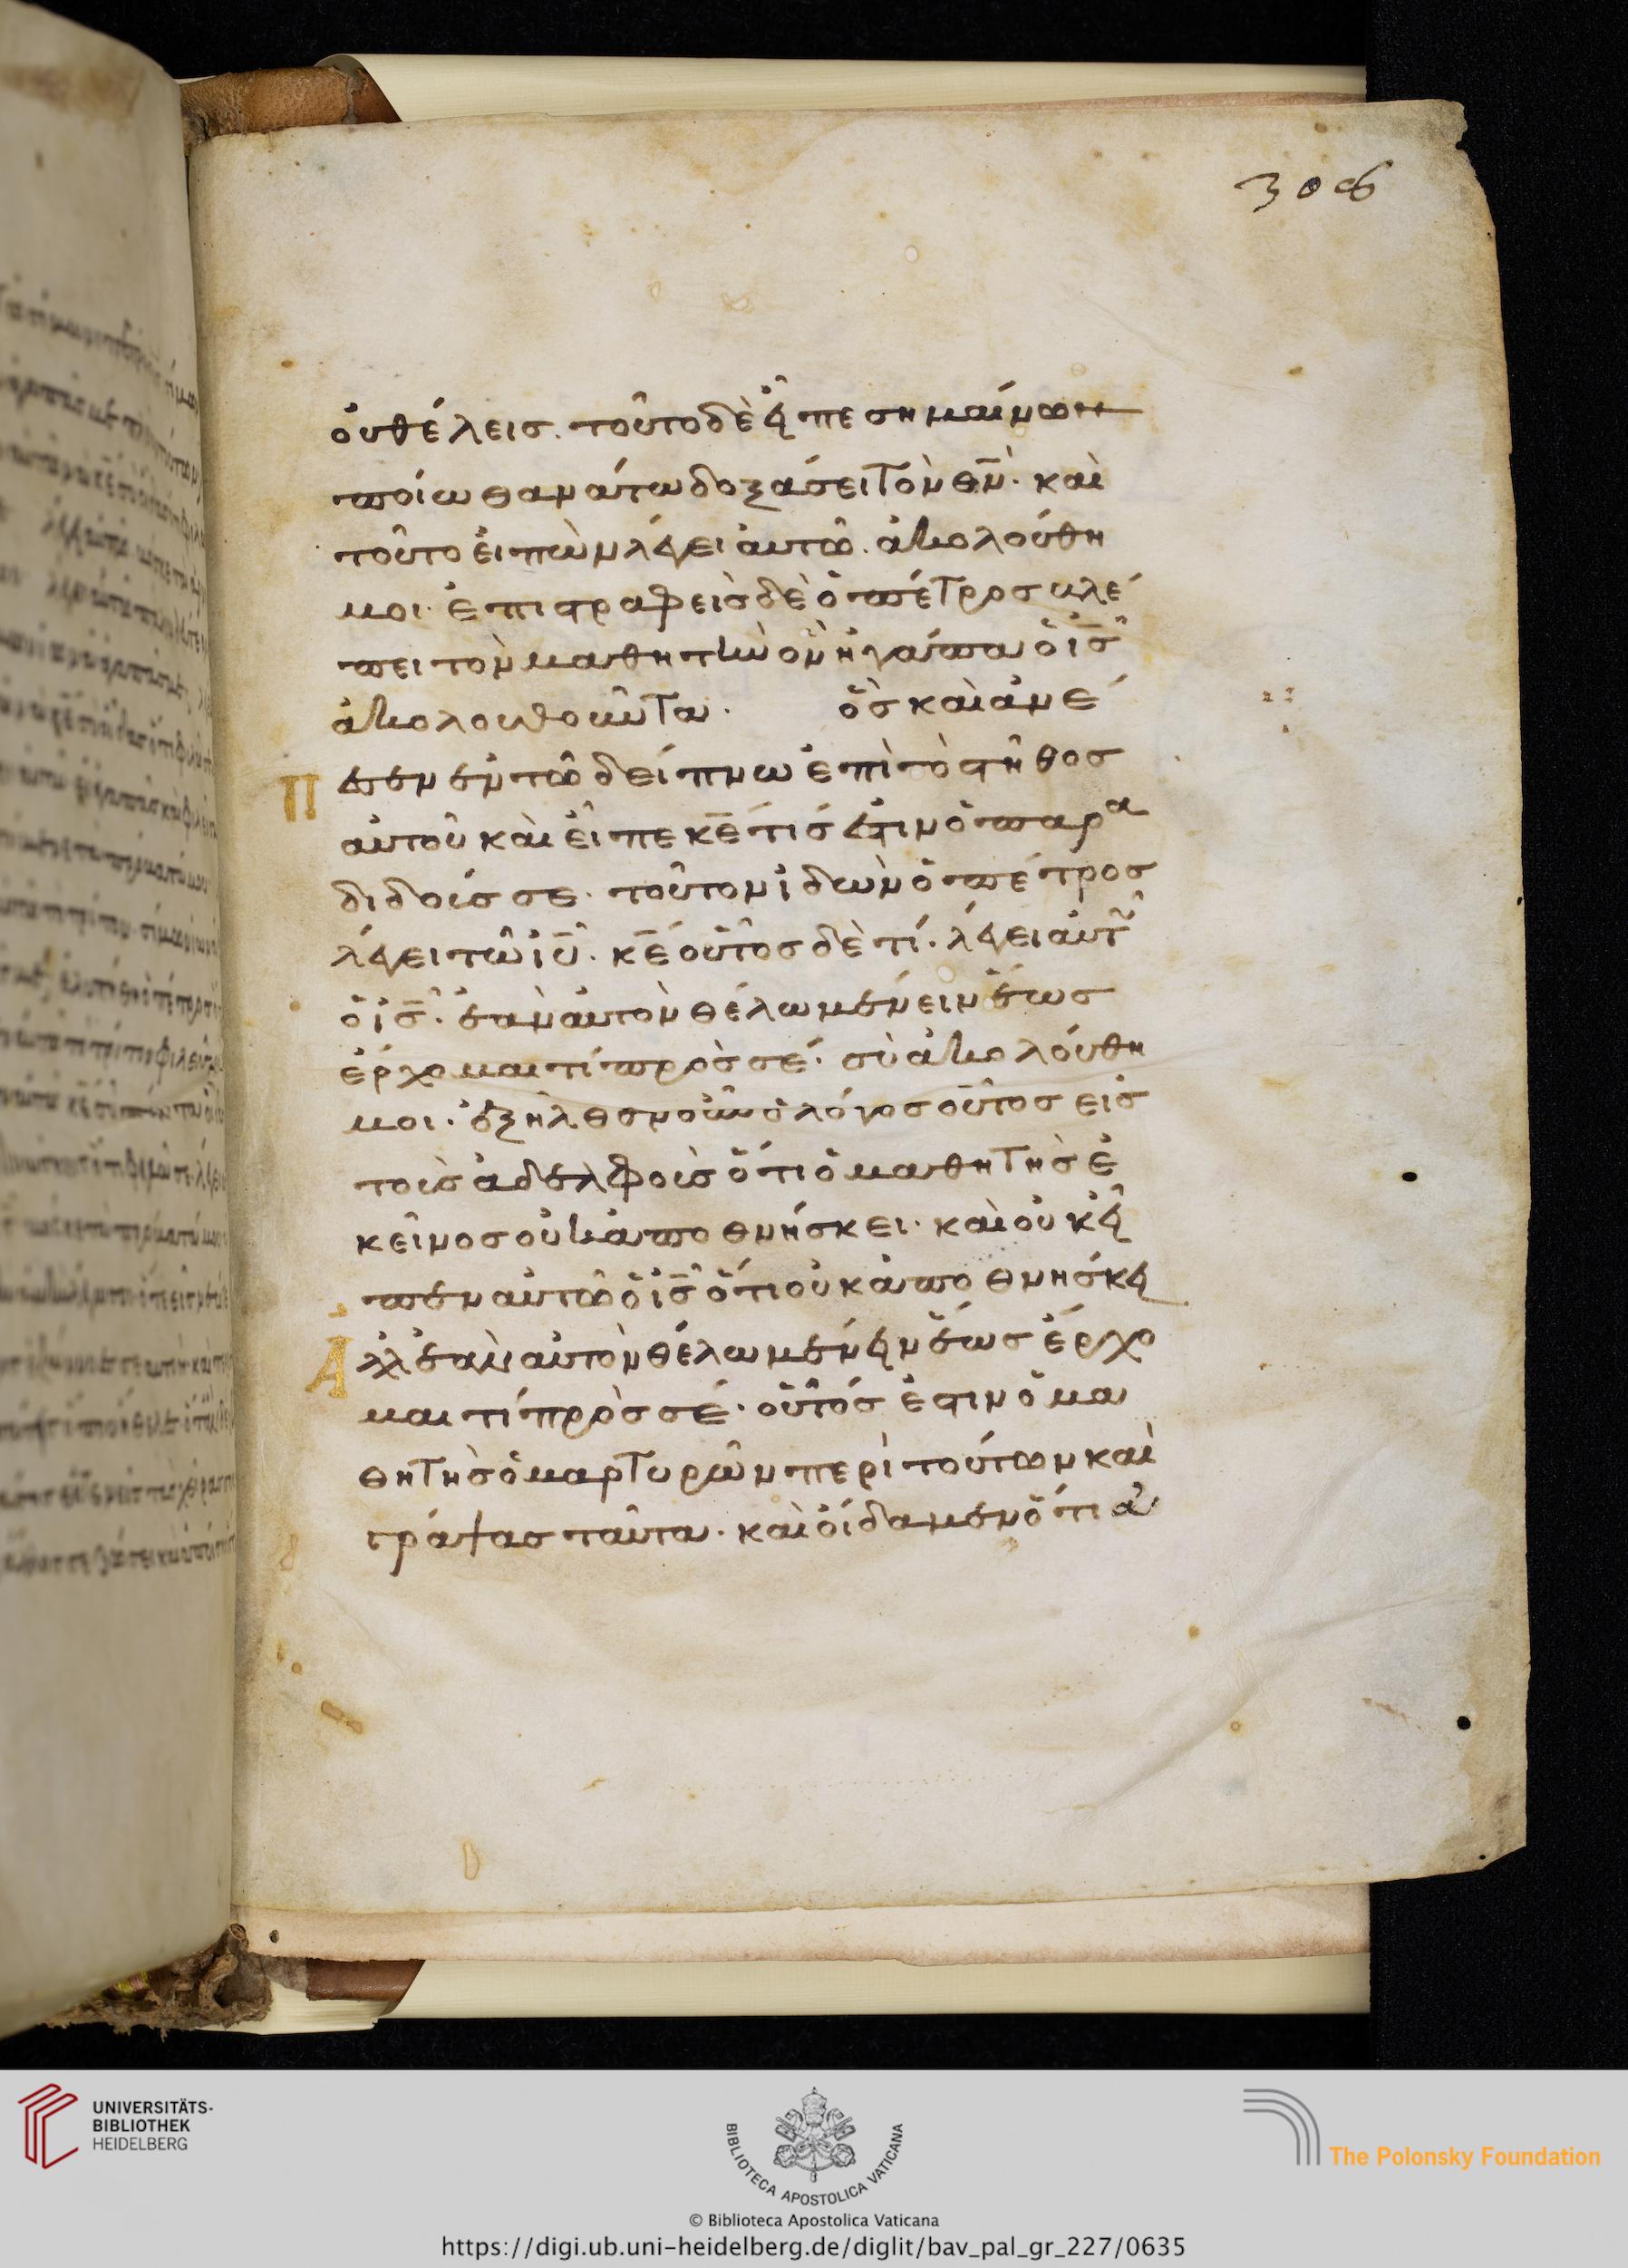 306
οὐ θέλεις. τοῦτο δὲ εἶπε σημαίνων
ποίω θανάτω δοξάσει τὸν θν̄. καὶ
τοῦτο εἰπὼν λέγει αὐτῶ. ἀκολούθη
μοι. ἐπιστραφεὶς δὲ ὁ πέτρος βλέ
πει τὸν μαθητὴν ὃν ἠγάπα ὁ ις̄
ἀκολουθοῦντα. ὃς καὶ ἀνέ
πεσεν ἐν τῶ δείπνω ἐπὶ τὸ στῆθος
αὐτοῦ καὶ εἶπε κε̄ τίς ἐστιν ὁ παρα
διδούς σε. τοῦτον ἰδὼν ὁ πέτρος
λέγει τῶ ιῡ. κε̄ οὗτος δὲ τί. λέγει αὐτῶ
ὁ ις̄. ἐὰν αὐτὸν θέλω μένειν ἕως
ἔρχομαι τί πρὸς σέ. σὺ ἀκολούθη
μοι. ἐξῆλθεν οὖν ὁ λόγος οὗτος εἰς
τοὺς ἀδελφοὺς ὅτι ὁ μαθητὴς ἐ
κεῖνος οὐκ ἀποθνήσκει. καὶ οὐκ εἶ
πεν αὐτῶ ὁ ις̄ ὅτι οὐκ ἀποθνήσκει
Ἀλλ ἐὰν αὐτὸν θέλω μένειν ἕως ἔρχο
μαι τί πρὸς σέ. οὗτός ἐστιν ὁ μα
θητὴς ὁ μαρτυρῶν περὶ τούτων καὶ
γράψας ταῦτα. καὶ οἴδαμεν ὅτι ἀ
UNIVERSITÄTS-
BIBLIOTHEK
HEIDELBERG
BIBLIOTECA APOSTOLICA VATICANA
The Polonsky Foundation
© Biblioteca Apostolica Vaticana
https://digi.ub.uni-heidelberg.de/diglit/bav_pal_gr_227/0635